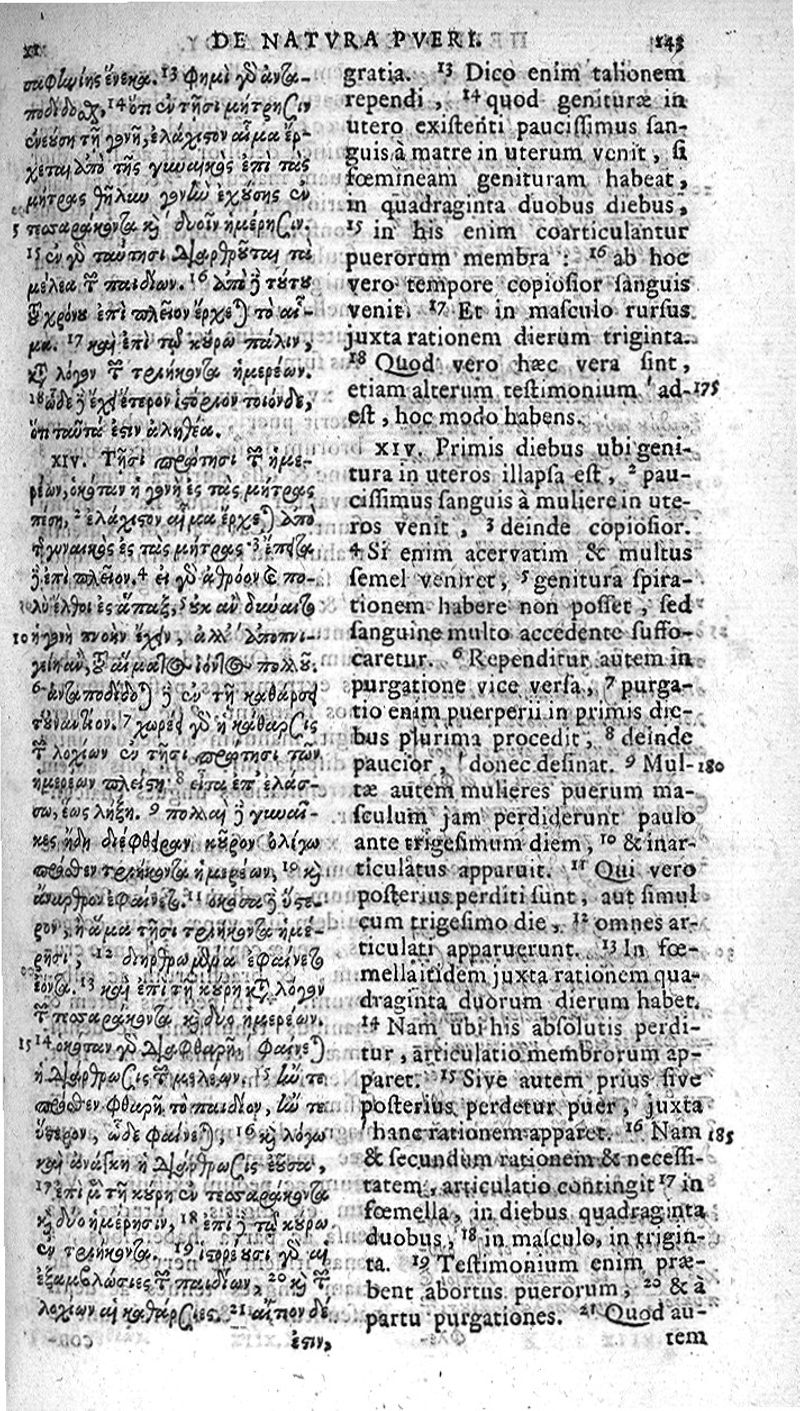 DE NATVRA PVERI. 143
σαφωίης ἕνεκα. 13 φημὶ γὸ ἀντα-
ποδίδοσθαι, 14 ὅτι ἐν τῇσι μήτρῃσιν
ἐνεύσῃ τῇ γονῇ, ἐλάχιστον αἷμα ἔρ-
χεται ἀπὸ τῆς γυναικὸς ἐπὶ τὰς
μήτρας θῆλυν γονὴν ἐχούσης ἐν
5 τεσσαράκοντα καὶ δυοῖν ἡμέρῃσιν.
15 ἐν γὸ ταύτῃσι διαρθροῦται τὰ
μέλεα τῶν παιδίων. 16 ἀπὸ δὲ τούτου
τοῦ χρόνου ἐπὶ πλεῖον ἔρχεται τὸ αἷ-
μα. 17 καὶ ἐπὶ τῷ κούρῳ πάλιν,
κατὰ λόγον τῶν τριήκοντα ἡμερέων.
18 ὧδε δὲ ἔχει ἕτερον ἱστόριον τοιόνδε,
ὅτι ταῦτά ἐστιν ἀληθέα.
XIV. Τῇσι πρώτῃσι τῶν ἡμε-
ρέων, ὁκόταν ἡ γονὴ ἐς τὰς μήτρας
πέσῃ, 2 ἐλάχιστον αἷμα ἔρχεται ἀπὸ
τῆς γυναικὸς ἐς τὰς μήτρας 3 ἔπειτα
δὲ ἐπὶ πλεῖον. 4 εἰ γὸ ἀθρόον τε πο-
λὺ ἔλθοι ἐς ἅπαξ, 5 οὐκ ἂν δύναιτο
10 ἡ γονὴ πνοὴν ἔχειν, ἀλλ' ἀποπνι-
γείη ἂν, τοῦ αἵματος ἰόντος πολλοῦ.
6 ἀνταποδίδοται δὲ ἐν τῇ καθάρσει
τοὐναντίον. 7 χωρέει γὸ ἡ κάθαρσις
τῶν λοχίων ἐν τῇσι πρώτῃσι τῶν
ἡμερέων πλείστη 8 εἶτα ἐπ' ἐλάσ-
σω, ἕως λήξῃ. 9 πολλαὶ δὲ γυναῖ-
κες ἤδη διέφθειραν κοῦρον ὀλίγῳ
πρόσθεν τριήκοντα ἡμερέων, 10 καὶ
ἄναρθρον ἐφαίνετο. 11 ὁκόσα δὲ ὕστε-
ρον, ἢ ἅμα τῇσι τριήκοντα ἡμέ-
ρῃσι, 12 διηρθρωμένα ἐφαίνετο
ἐόντα. 13 καὶ ἐπὶ τῇ κούρῃ κατὰ λόγον
τῶν τεσσαράκοντα καὶ δύο ἡμερέων.
15 14 ὁκόταν γὸ διαφθαρῇ, φαίνεται
ἡ διάρθρωσις τῶν μελέων. 15 ἤν τε
πρόσθεν φθαρῇ τὸ παιδίον, ἤν τε
ὕστερον, ὧδε φαίνεται, 16 καὶ λόγῳ
καὶ ἀνάγκῃ ἡ διάρθρωσις ἐοῦσα,
17 ἐπὶ μὲν τῇ κούρῃ ἐν τεσσαράκοντα
καὶ δύο ἡμέρῃσιν, 18 ἐπὶ δὲ τῷ κούρῳ
ἐν τριήκοντα. 19 ἱστορέουσι γὸ αἱ
ἐξαμβλώσιες τῶν παιδίων, 20 καὶ τῶν
λοχίων αἱ καθάρσιες. 21 αἴτιον δέ
ἐστιν,
gratia. 13 Dico enim talionem
rependi, 14 quod genituræ in
utero existenti paucissimus san-
guis à matre in uterum venit, si
fœmineam genituram habeat,
in quadraginta duobus diebus,
15 in his enim coarticulantur
puerorum membra: 16 ab hoc
vero tempore copiosior sanguis
venit. 17 Et in masculo rursus
juxta rationem dierum triginta.
18 Quod vero hæc vera sint,
etiam alterum testimonium ad- 175
est, hoc modo habens.
XIV. Primis diebus ubi geni-
tura in uteros illapsa est, 2 pau-
cissimus sanguis à muliere in ute-
ros venit, 3 deinde copiosior.
4 Si enim acervatim & multus
semel veniret, 5 genitura spira-
tionem habere non posset, sed
sanguine multo accedente suffo-
caretur. 6 Rependitur autem in
purgatione vice versa, 7 purga-
tio enim puerperii in primis die-
bus plurima procedit, 8 deinde
paucior, donec desinat. 9 Mul- 180
tæ autem mulieres puerum ma-
sculum jam perdiderunt paulo
ante trigesimum diem, 10 & inar-
ticulatus apparuit. 11 Qui vero
posterius perditi sunt, aut simul
cum trigesimo die, 12 omnes ar-
ticulati apparuerunt. 13 In fœ-
mella itidem juxta rationem qua-
draginta duorum dierum habet.
14 Nam ubi his absolutis perdi-
tur, articulatio membrorum ap-
paret. 15 Sive autem prius sive
posterius perdetur puer, juxta
hanc rationem apparet. 16 Nam 185
& secundum rationem & necessi-
tatem, articulatio contingit 17 in
fœmella, in diebus quadraginta
duobus, 18 in masculo, in trigin-
ta. 19 Testimonium enim præ-
bent abortus puerorum, 20 & à
partu purgationes. 21 Quod au-
tem